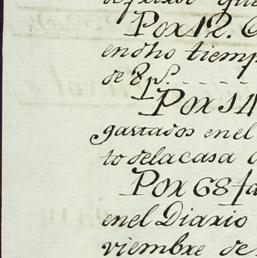 Por 12.
endho tiemp
de 8 p.s
Por 14
garrados en el
to dela casa
Por 68
en el Diario
viembre de